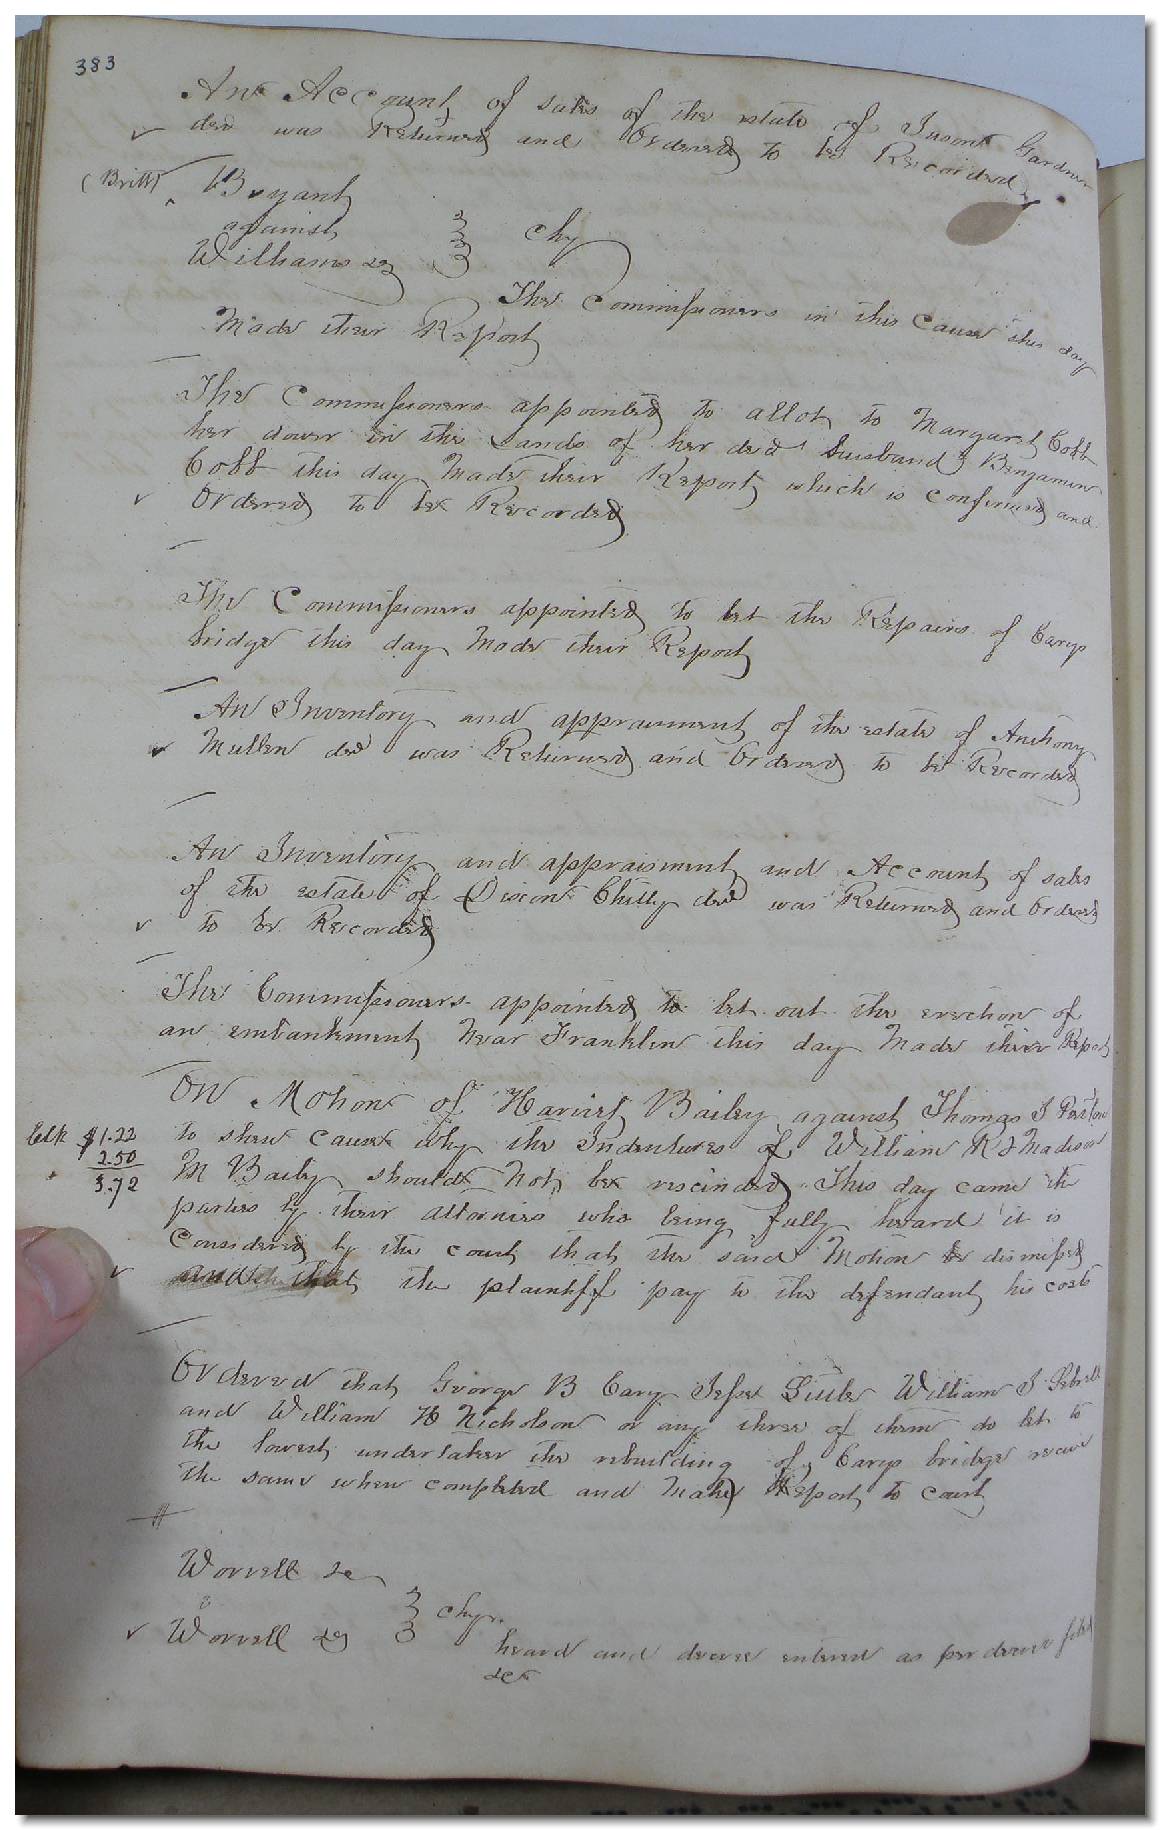 383
An Account of sales of the estate of Gardner
decd was Returned and Ordered to be Recorded
(Britt) Bryant
against
Williams &c } chy
The Commissioners in this cause this day
Made their Report
The Commissioners appointed to allot to Margaret Cobb
her dower in the Lands of her decd husband Benjamin
Cobb this day Made their Report which is confirmed and
Ordered to be Recorded
The Commissioners appointed to let the Repairs of Carys
bridge this day Made their Report
An Inventory and appraisment of the estate of Anthony
Mullen decd was Returned and Ordered to be Recorded
An Inventory and appraisment and Account of sales
of the estate of decd was Returned and Ordered
to be Recorded
The Commissioners appointed to let out the erection of
an embankment Near Franklin this day Made their Report
On Motion of Harriet Bailey against Thomas J
Clk $1.22 to shew cause why the Indentures of William R & Madison
2.50 M Baily should Not be rescinded This day came the
3.72 parties by their attornies who being fully heard it is
Considered by the court that the said Motion be dismissed
and that the plaintiff pay to the defendant his costs
Ordered that George B Cary Jesse Little William J Sebrell
and William H Nicholson or any three of them do let to
the lowest undertaker the rebuilding of Carys bridge receive
the same when completed and Make Report to court
Worrell &c
v
Worrell &c } chy
heard and decree entered as per decree filed
&c